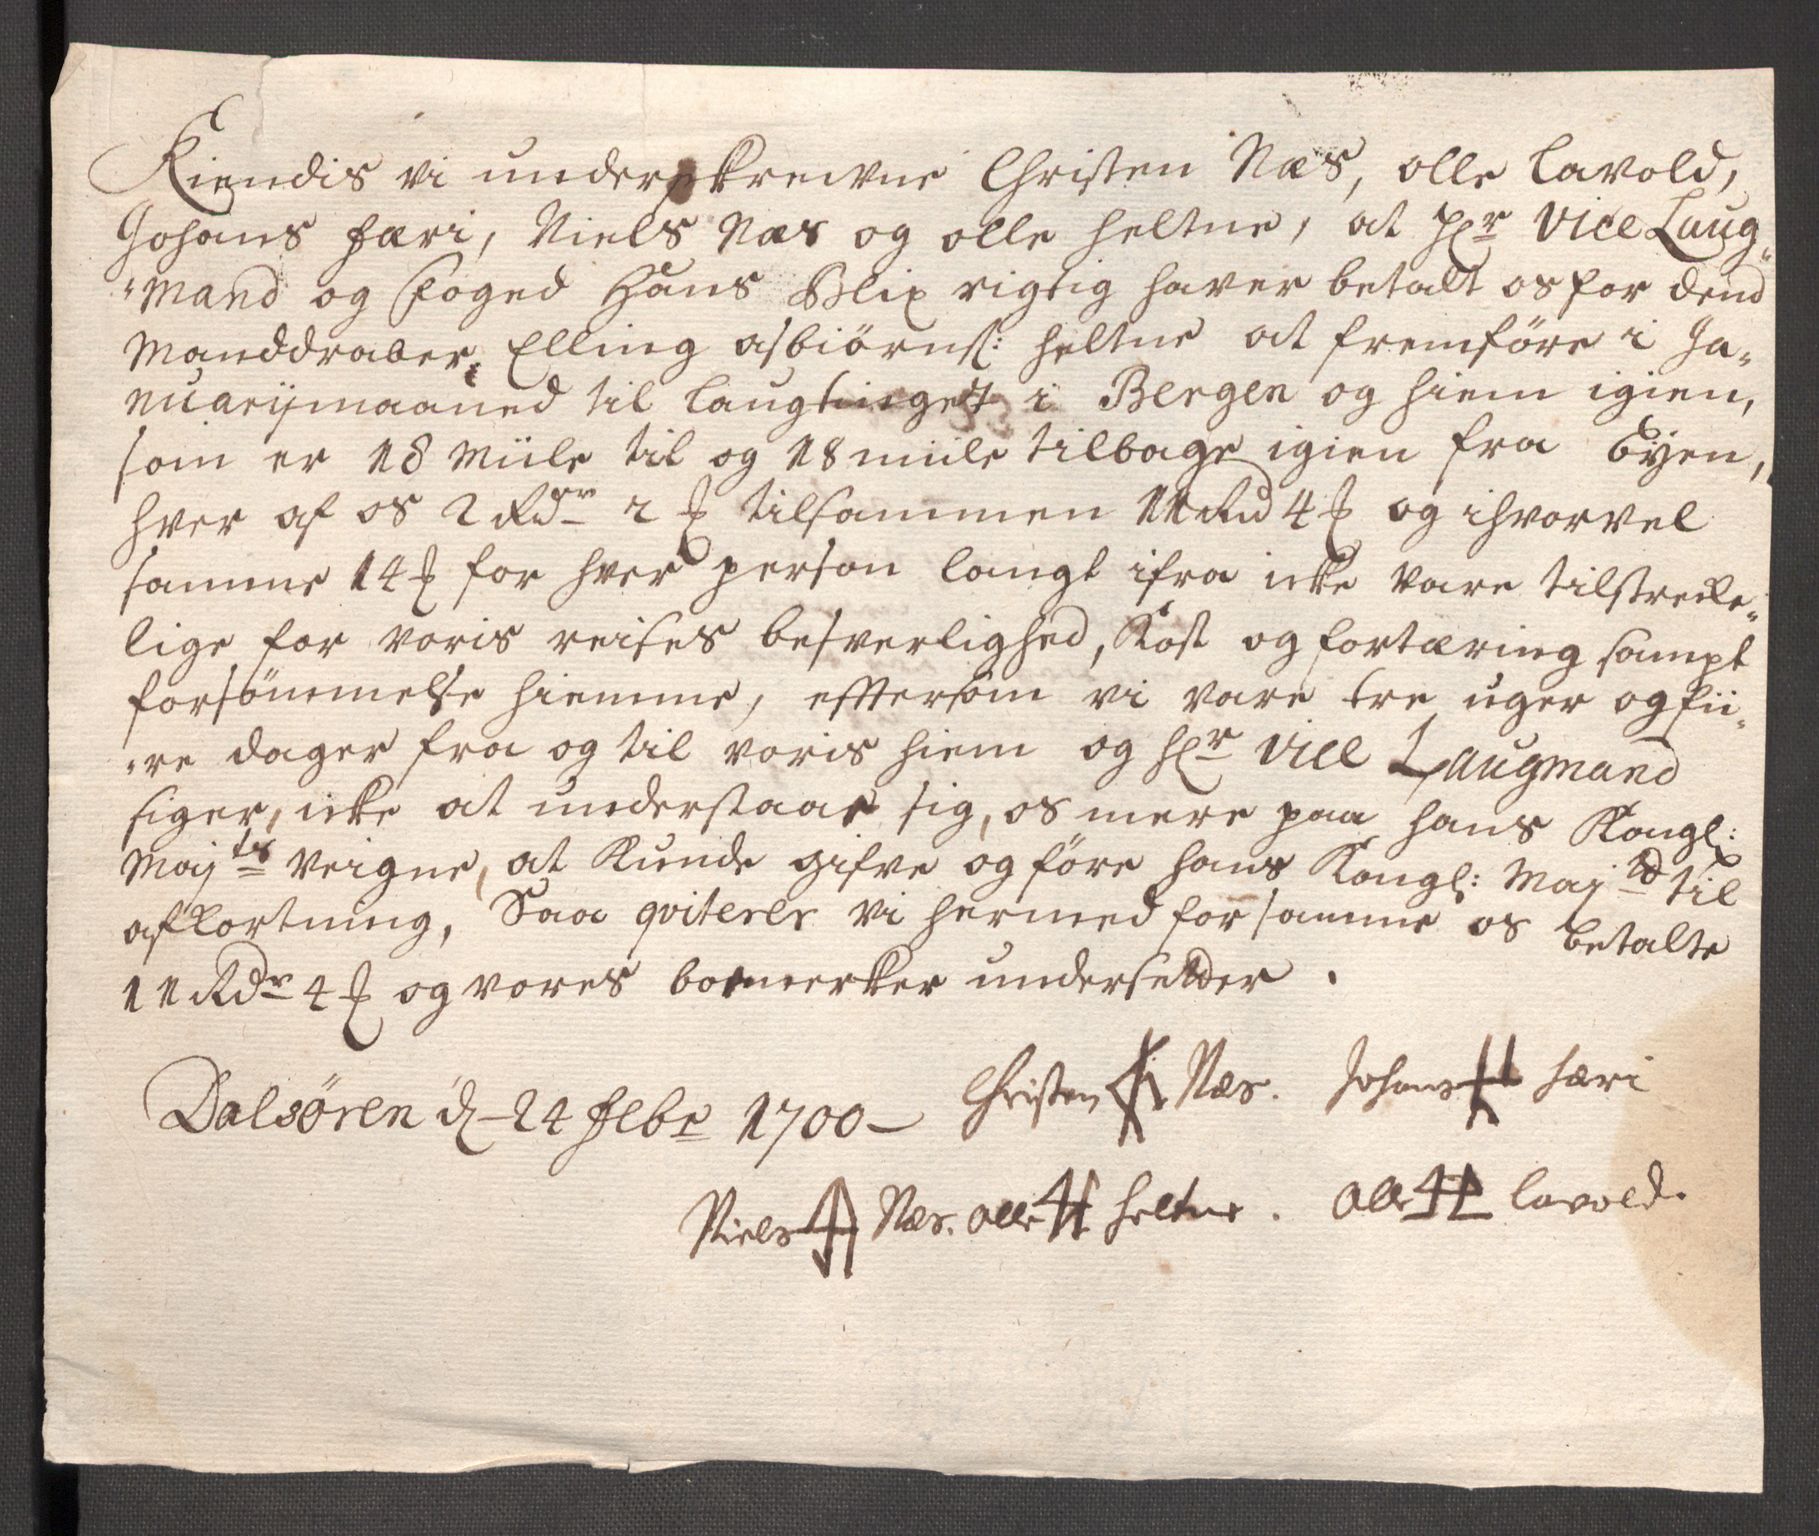 Kiendis vi underskrewne Christen Næs, olle lavold,
Johans færi, Niels Næs og olle heltne, at Hr Vice Laug„
„mand og Foged Hans Blix rigtig haver betalt os for dend
Manddraber, Elling asbiörns: heltne at fremföre i Ja„
nuarijmaaned til laugtinget i Bergen og hiem igien,
som er 18 Miile til og 18 miile tilbage igien fra Byen,
hver af os 2 Rdr 2 ℔ tilsammen 11 Rd 4 ℔ og ihvorvel
samme 14 ℔ for hver person langt ifra icke vare tilstrecke„
lige for voris reises besverlighed, Kost og fortæring sampt
forsömmelse hiemme, efftersom vi vare tre uger og fii„
„re dager fra og til voris hiem og hr Vice Laugmand
siger, icke at understaar sig, os mere paa hans Kongl:
Majts veigne, at Kunde gifve og före hans Kongl: Majts til
afkortning, Saa qviterer vi hermed for samme os betalte
11 Rdr 4 ℔ og vores bomerker undersetter.
Dalsören d. 24 Febr 1700 Christen Næs. Johans færi
Niels Næs. olle heltne. olle lavold.